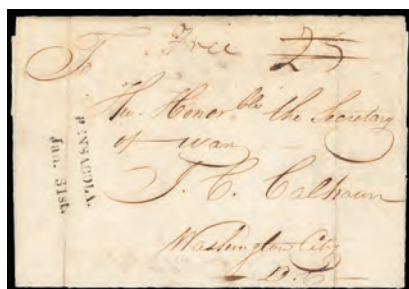 Free 25
The Honor.ble the Secretary
of war
J. C. Calhoun
Washington City
D. C.
PENSACOLA.
Jan. 31st.